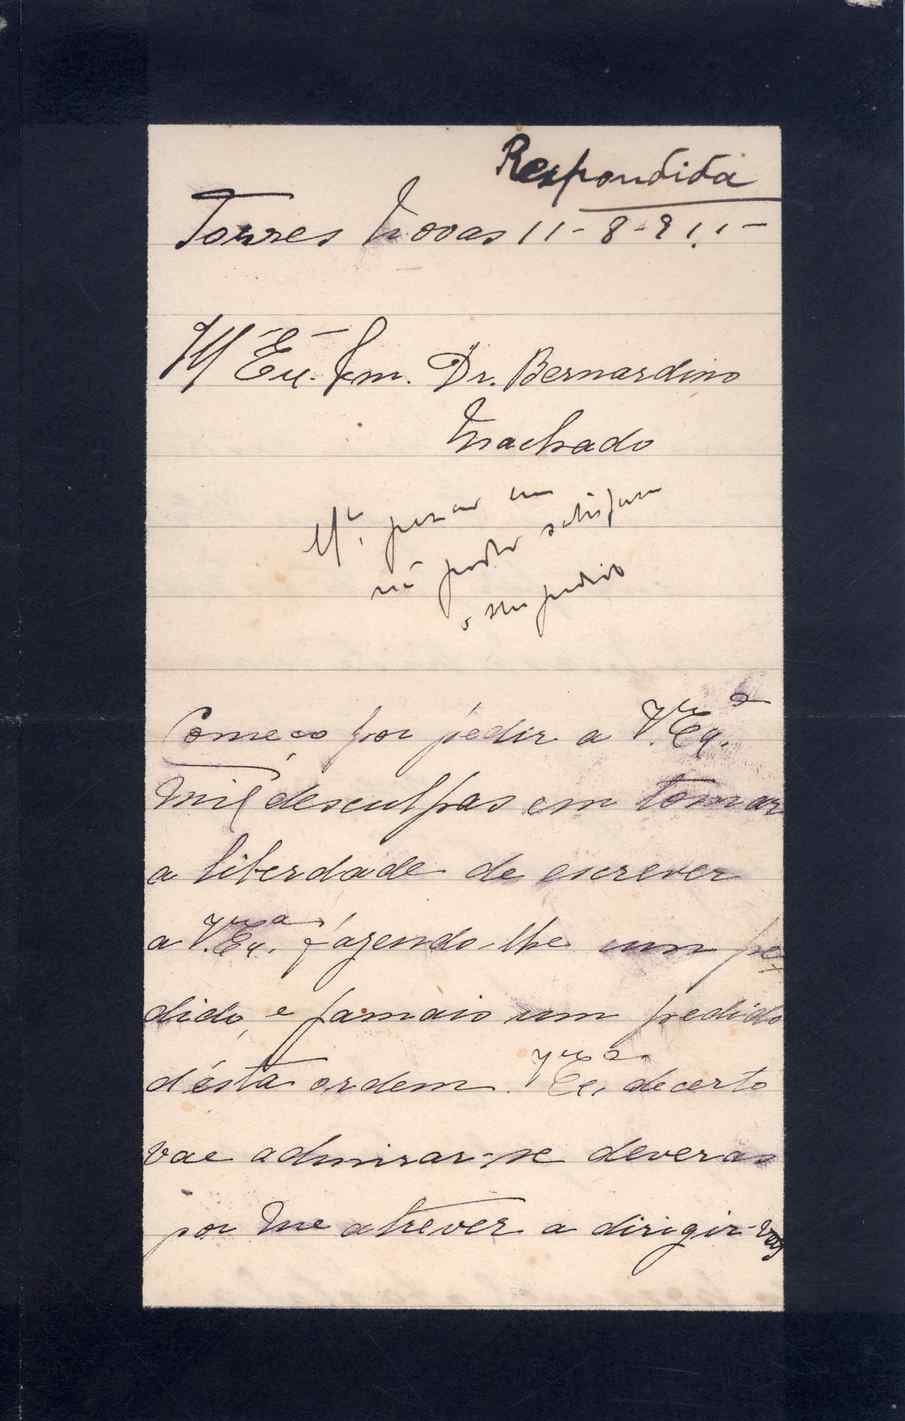 Respondida
Torres Novas 11-8-911-
Mº Exº. Snr. Dr. Bernardino
Machado
Mto. pezar em
não poder satisfazer
o seu pedido
Começo por pedir a V. Exª.
mil desculpas em tomar
a liberdade de escrever
a V. Exª. fazendo-lhe um pe-
dido, e jamais um pedido
d'ésta ordem. V. Exª. decerto
vae admirar-se deveras
por me atrever a dirigir-vos